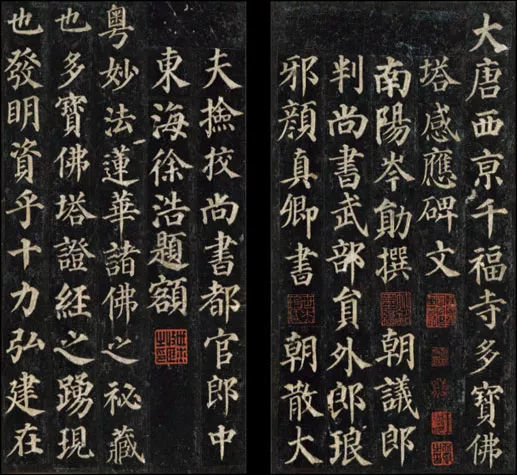 大唐西亰千福寺多寶佛
塔感應碑文
南陽岑勛撰 朝議郎
判尚書武部貟外郎琅
邪顔真卿書 朝散大
夫撿挍尚書都官郎中
東海徐浩題額
粤妙法蓮華諸佛之秘藏
也多寶佛塔證經之踴現
也發明資乎十力弘建在